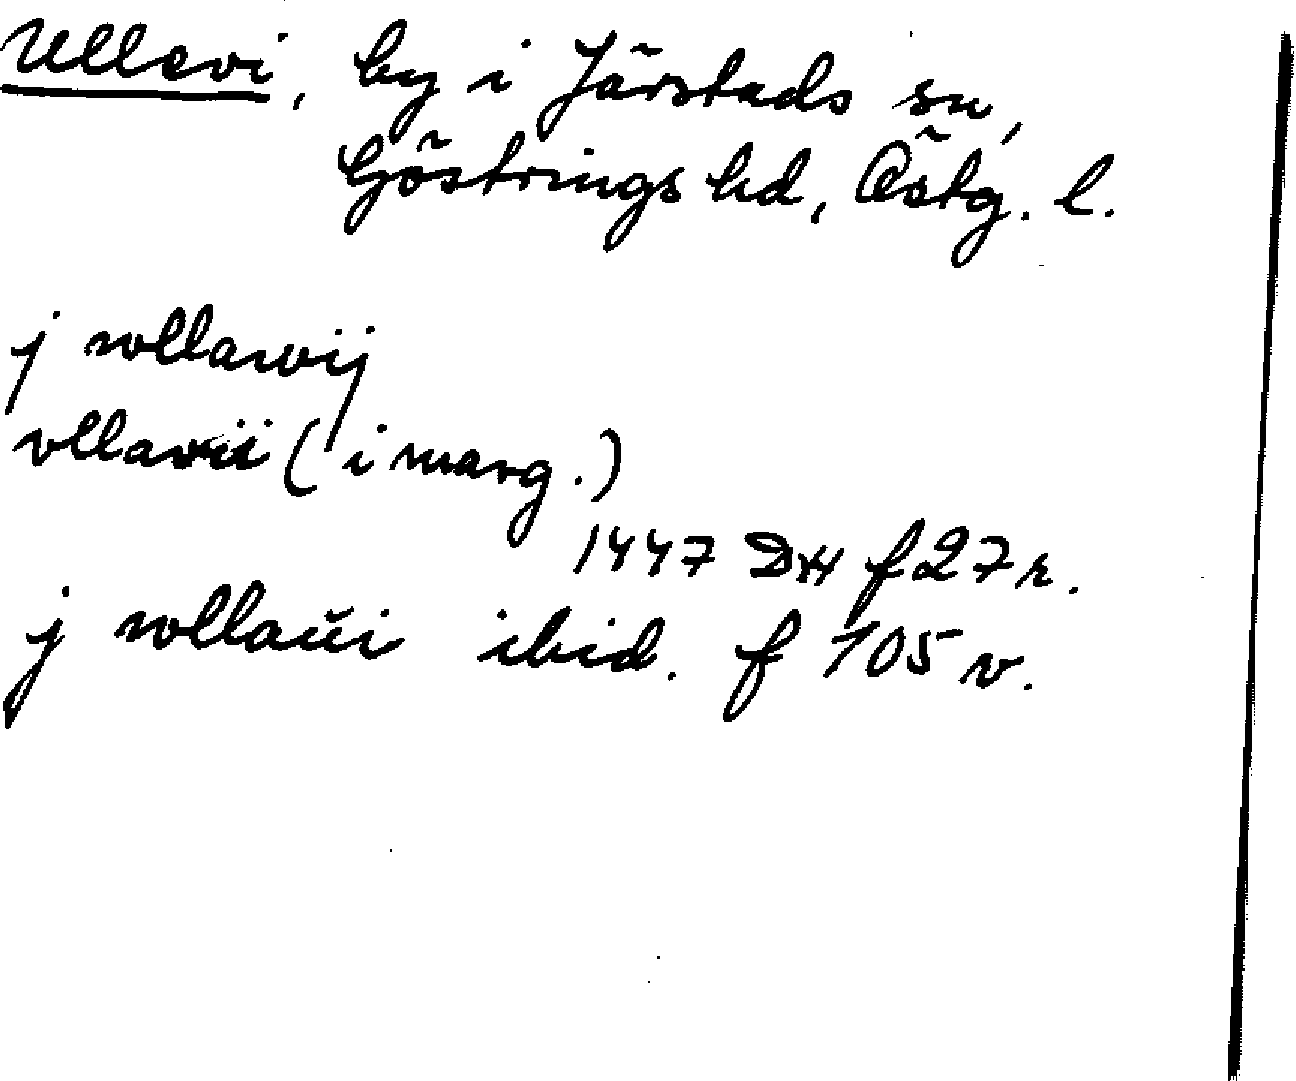 Ullevi, by i Järstads sn,
Göstrings hd, Östg. l.
j wllawij
vllavii (i marg.)
1447 D14 f 27 r.
j wllaŭi ibid. f 105 v.